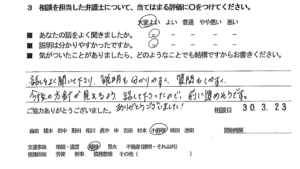 3 相談を担当した弁護士について、当てはまる評価に○をつけてください。
大変よい よい 普通 やや悪い 悪い
■ あなたの話をよく聞きましたか。
■ 説明は分かりやすかったですか。
■ 気がついたことがありましたら、どのようなことでも結構ですからお書きください。
話をよく聞いて下さり、説明も分かりやすく、質問もしやすく、
今後の方針が見えるよう、話して下さったので、前に進めそうです。
ありがとうございました！
ご協力ありがとうございました。 相談日 30.3.23
交通事故 相続・遺言 離婚 男女 不動産
債務整理 その他（ ）